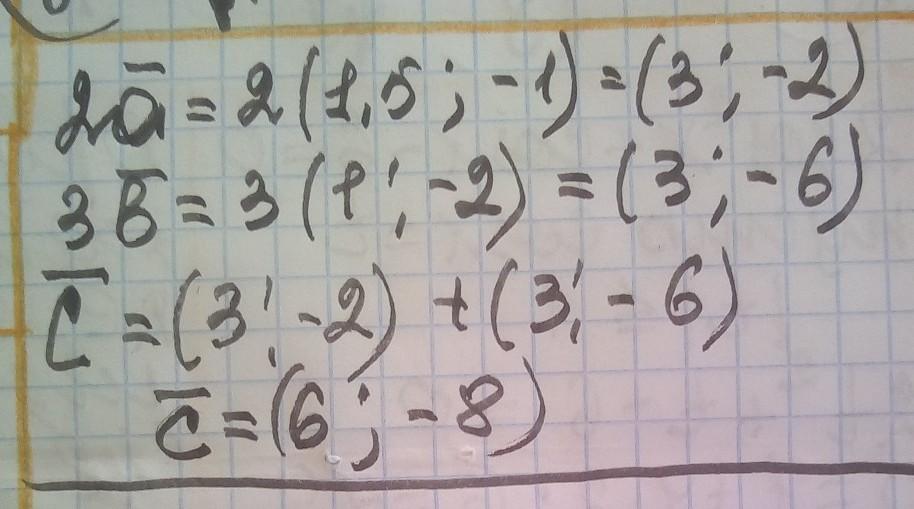 2a̅ = 2(1,5 ; -1) = (3 ; -2)
3b̅ = 3(1 ; -2) = (3 ; -6)
c̅ = (3 ; -2) + (3 ; -6)
c̅ = (6 ; -8)